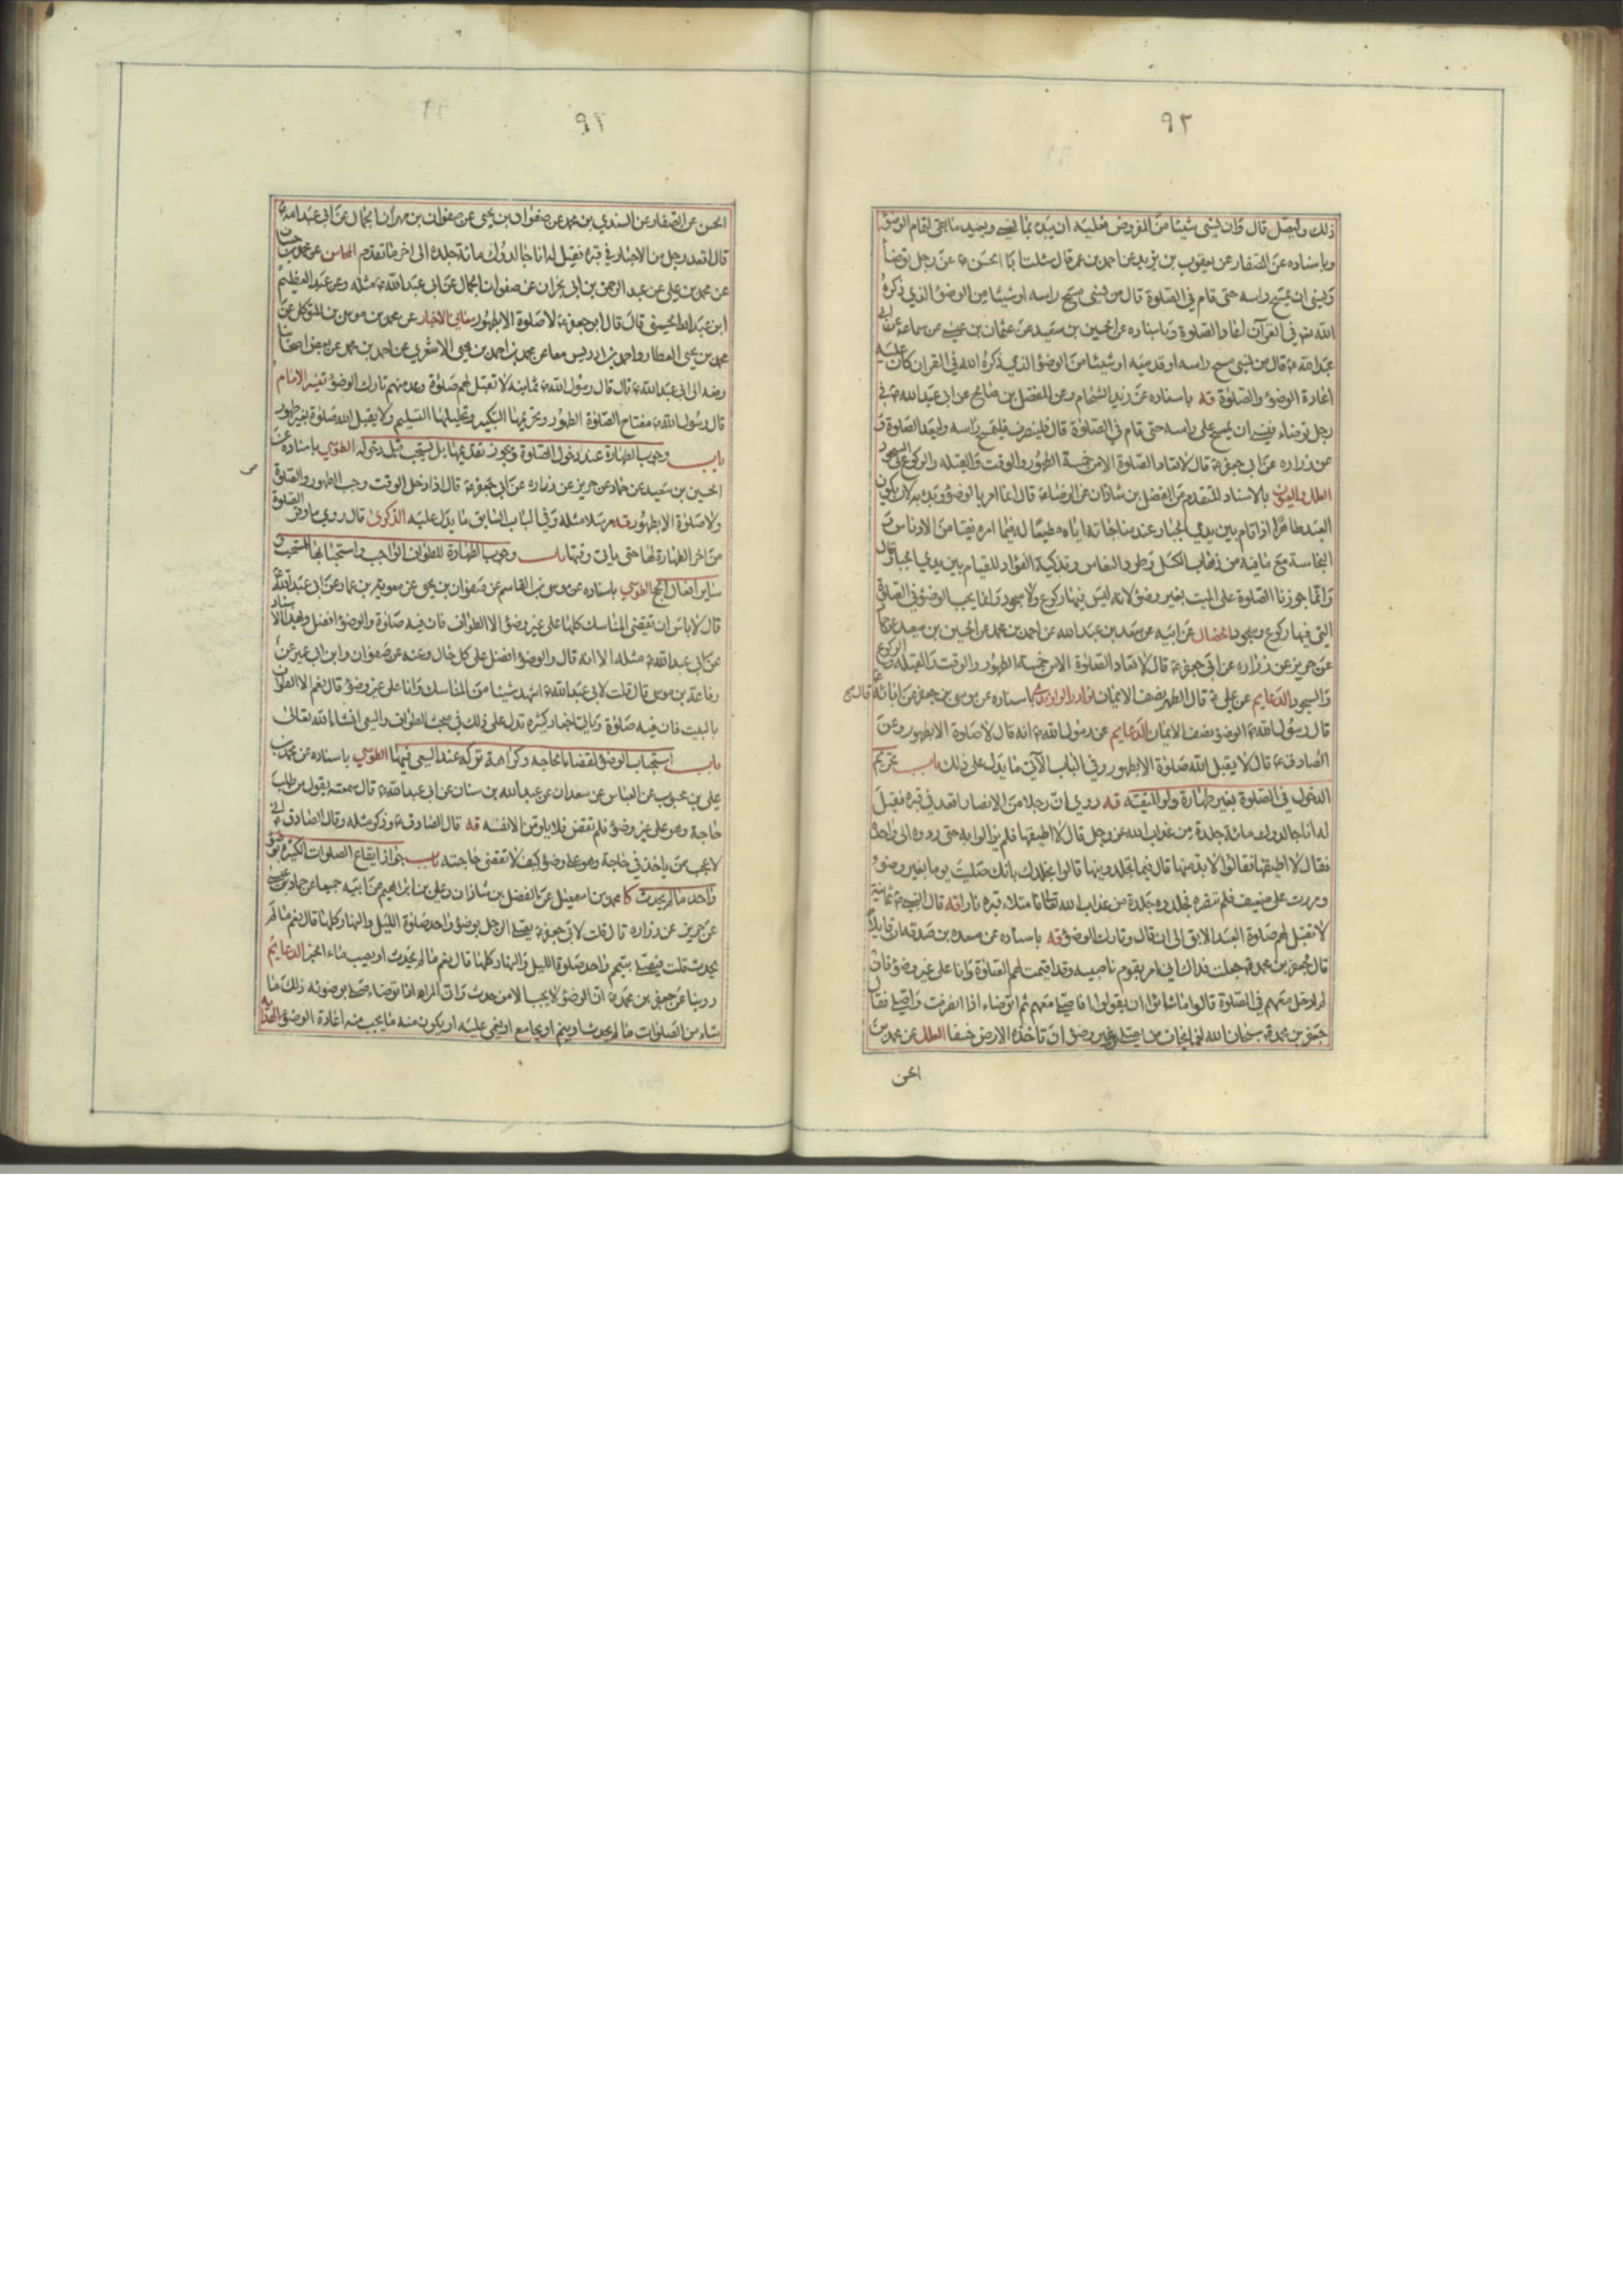 ٩٢
ذلك وليصل قال وان نسي شيئا من المفروض فعليه ان يبدء بما نسي ويعيد ما بقي لتمام الوضوء
وباسناده عن الصفار عن يعقوب بن يزيد عن احمد بن عمر قال سئلت ابا الحسن ع عن رجل توضأ
ونسي ان يمسح راسه حتى قام في الصلوة قال من نسي مسح راسه او شيئا من الوضوء الذي ذكره
الله في القرآن اعاد الصلوة وباسناده عن الحسين بن سعيد عن عثمان بن عيسى عن سماعة عن ابي
عبد الله ع قال من نسي مسح راسه او قدميه او شيئا من الوضوء الذي ذكره الله في القران كان عليه
اعادة الوضوء والصلوة قه باسناده عن زيد الشحام وعن المفضل بن صالح عن ابي عبد الله ع في
رجل توضاء فنسي ان يمسح على راسه حتى قام في الصلوة قال فلينصرف فليمسح راسه وليعد الصلوة و
عن زراره عن ابي جعفر ع قال لا تعاد الصلوة الا من خمسة الطهور والوقت والقبله والركوع والسجود
العلل والعيون بالاسناد المتقدم عن الفضل بن شاذان عن الرضا ع قال انما امر بالوضوء وبدء به لان يكون
العبد طاهرا اذا قام بين يدي الجبار عند مناجاته اياه مطيعا له فيما امره نقيا من الادناس و
النجاسة مع ما فيه من ذهاب الكسل وطرد النعاس وتذكية الفؤاد للقيام بين يدي الجبار قال
وانما جوزنا الصلوة على الميت بغير وضوء لانه ليس فيها ركوع ولا سجود وانما يجب الوضوء في الصلوة
التي فيها ركوع وسجود الخصال عن ابيه عن سعد بن عبد الله عن احمد بن محمد عن الحسين بن سعيد عن حماد
عن حريز عن زراره عن ابي جعفر ع قال لا تعاد الصلوة الا من خمسة الطهور والوقت والقبلة والركوع
والسجود الدعايم عن علي ع قال الطهر نصف الايمان نوادر الراوندي باسناده عن موسى بن جعفر عن ابائه ع قال
قال رسول الله ص الوضوء نصف الايمان الدعايم عن رسول الله ص انه قال لا صلوة الا بطهور وعن
الصادق ع قال لا يقبل الله صلوة الا بطهور وفي الباب الآتي ما يدل على ذلك باب تحريم
الدخول في الصلوة بغير طهارة ولو للتقيه قه روي ان رجلا من الانصار اقعد في قبره فقيل
له انا جالدوك مائة جلدة من عذاب الله عز وجل قال لا اطيقها فلم يزالوا به حتى ردوه الى واحدة
فقال لا اطيقها فقالوا لا بد منها قال فيما تجلدونيها قالوا نجلدك بانك صليت يوما بغير وضوء
ومررت على ضعيف فلم تنصره فجلدوه جلدة من عذاب الله تعالى فامتلاء قبره نارا قه قال النبي ص ثمانية
لا تقبل لهم صلوة العبد الابق الى ان قال وتارك الوضوء قه باسناده عن مسعده بن صدقه ان قايلا
قال لجعفر بن محمد ع جعلت فداك اني امر بقوم ناصبيه وقد اقيمت لهم الصلوة وانا على غير وضوء فان
لم ادخل معهم في الصلوة قالوا ما شاؤا ان يقولوا افاصلي معهم ثم اتوضاء اذا انصرفت واصلي فقال
جعفر بن محمد ع سبحان الله اما يخاف من يصلي بغير وضوء ان تاخذه الارض خسفا العلل عن محمد بن
الحسن
٩٢
الحسن عن الصفار عن السندي بن محمد عن صفوان بن يحيى عن صفوان بن مهران الجمال عن ابي عبد الله ع
قال اقعد رجل من الاخيار في قبره فقيل له انا جالدوك مائة جلدة الى اخر ما تقدم المحاسن عن محمد بن حسان
عن محمد بن علي عن عبد الرحمن بن ابي نجران عن صفوان الجمال عن ابي عبد الله ع مثله وعن عبد العظيم
ابن عبد الله الحسيني قال قال ابو جعفر ع لا صلوة الا بطهور معاني الاخبار عن محمد بن موسى بن المتوكل عن
محمد بن يحيى العطار واحمد بن ادريس معا عن محمد بن احمد بن يحيى الاشعري عن احمد بن محمد عن بعض اصحابنا
رفعه الى ابي عبد الله ع قال قال رسول الله ص ثمانية لا تقبل لهم صلوة وعد منهم تارك الوضوء تفسير الامام
قال رسول الله ص مفتاح الصلوة الطهور وتحريمها التكبير وتحليلها التسليم ولا يقبل الله صلوة بغير طهور
باب وجوب الطهارة عند دخول الصلوة ويجوز تقديمها بل يستحب قبل دخوله الطوسي باسناده عن
الحسين بن سعيد عن حماد عن حريز عن زراره عن ابي جعفر ع قال اذا دخل الوقت وجب الطهور والصلوة
ولا صلوة الا بطهور قه مرسلا مثله وفي الباب السابق ما يدل عليه الذكرى قال روي ما وقر الصلوة
من اخر الطهارة لها حتى ياتي وقتها باب وجوب الطهارة للطواف الواجب واستحبابها للمستحب و
ساير افعال الحج الطوسي باسناده عن موسى بن القاسم عن صفوان بن يحيى عن معوية بن عمار عن ابي عبد الله ع
قال لا باس ان تقضي المناسك كلها على غير وضوء الا الطواف فان فيه صلوة والوضوء افضل وبهذا الاسناد
عن ابي عبد الله ع مثله الا انه قال والوضوء افضل على كل حال وعنه عن صفوان وابن ابي عمير عن
رفاعة بن موسى قال قلت لابي عبد الله ع اشهد شيئا من المناسك وانا على غير وضوء قال نعم الا الطواف
بالبيت فان فيه صلوة وياتي اخبار كثيره تدل على ذلك في مبحث الطواف والسعي انشاء الله تعالى
باب استحباب الوضوء لقضاء الحاجه وكراهة تركه عند السعي فيها الطوسي باسناده عن محمد بن
علي بن محبوب عن العباس عن سعدان عن عبد الله بن سنان عن ابي عبد الله ع قال سمعته يقول من طلب
حاجة وهو على غير وضوء فلم تقض فلا يلومن الا نفسه قه قال الصادق ع وذكر مثله وقال الصادق ع اني
لاعجب ممن ياخذ في حاجة وهو على وضوء كيف لا تقضى حاجته باب جواز ايقاع الصلوات الكثيره بوضوء
واحد ما لم يحدث كا محمد بن اسمعيل عن الفضل بن شاذان وعلي بن ابراهيم عن ابيه جميعا عن حماد بن عيسى
عن حريز عن زراره قال قلت لابي جعفر ع يصلي الرجل بوضوء واحد صلوة الليل والنهار كلها قال نعم ما لم
يحدث قلت فيصلي بتيمم واحد صلوة الليل والنهار كلها قال نعم ما لم يحدث او يصيب ماء الخبر الدعايم
روينا عن جعفر بن محمد ع ان الوضوء لا يجب الا من حدث وان المرء اذا توضاء صلى بوضوئه ذلك ما
شاء من الصلوات ما لم يحدث او ينم او يجامع او يغمى عليه او يكون منه ما يجب منه اعادة الوضوء الهداية